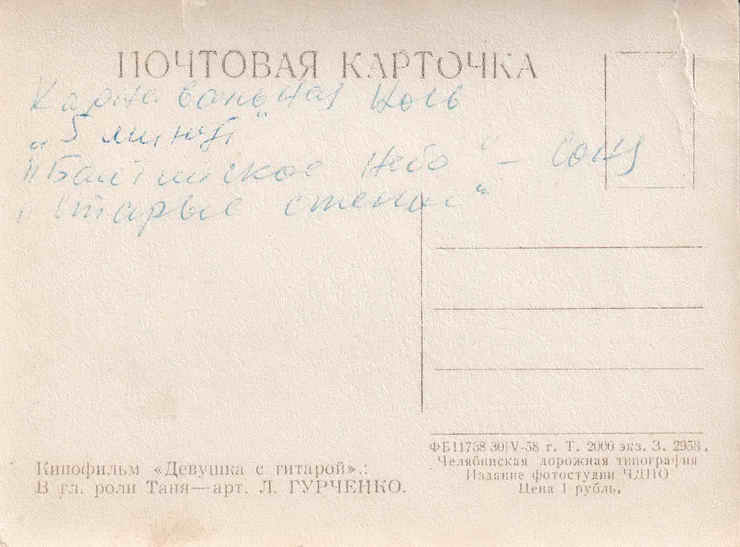 ПОЧТОВАЯ КАРТОЧКА
Карнавальная Ночь
„5 минут"
"Балтийское Небо" - Соня
"Старые стены"
Кинофильм «Девушка с гитарой».:
В гл. роли Таня—арт. Л. ГУРЧЕНКО.
ФБ11758 30/V-58 г. Т. 2000 экз. З. 2958.
Челябинская дорожная типография
Издание фотостудии ЧДПО
Цена 1 рубль.